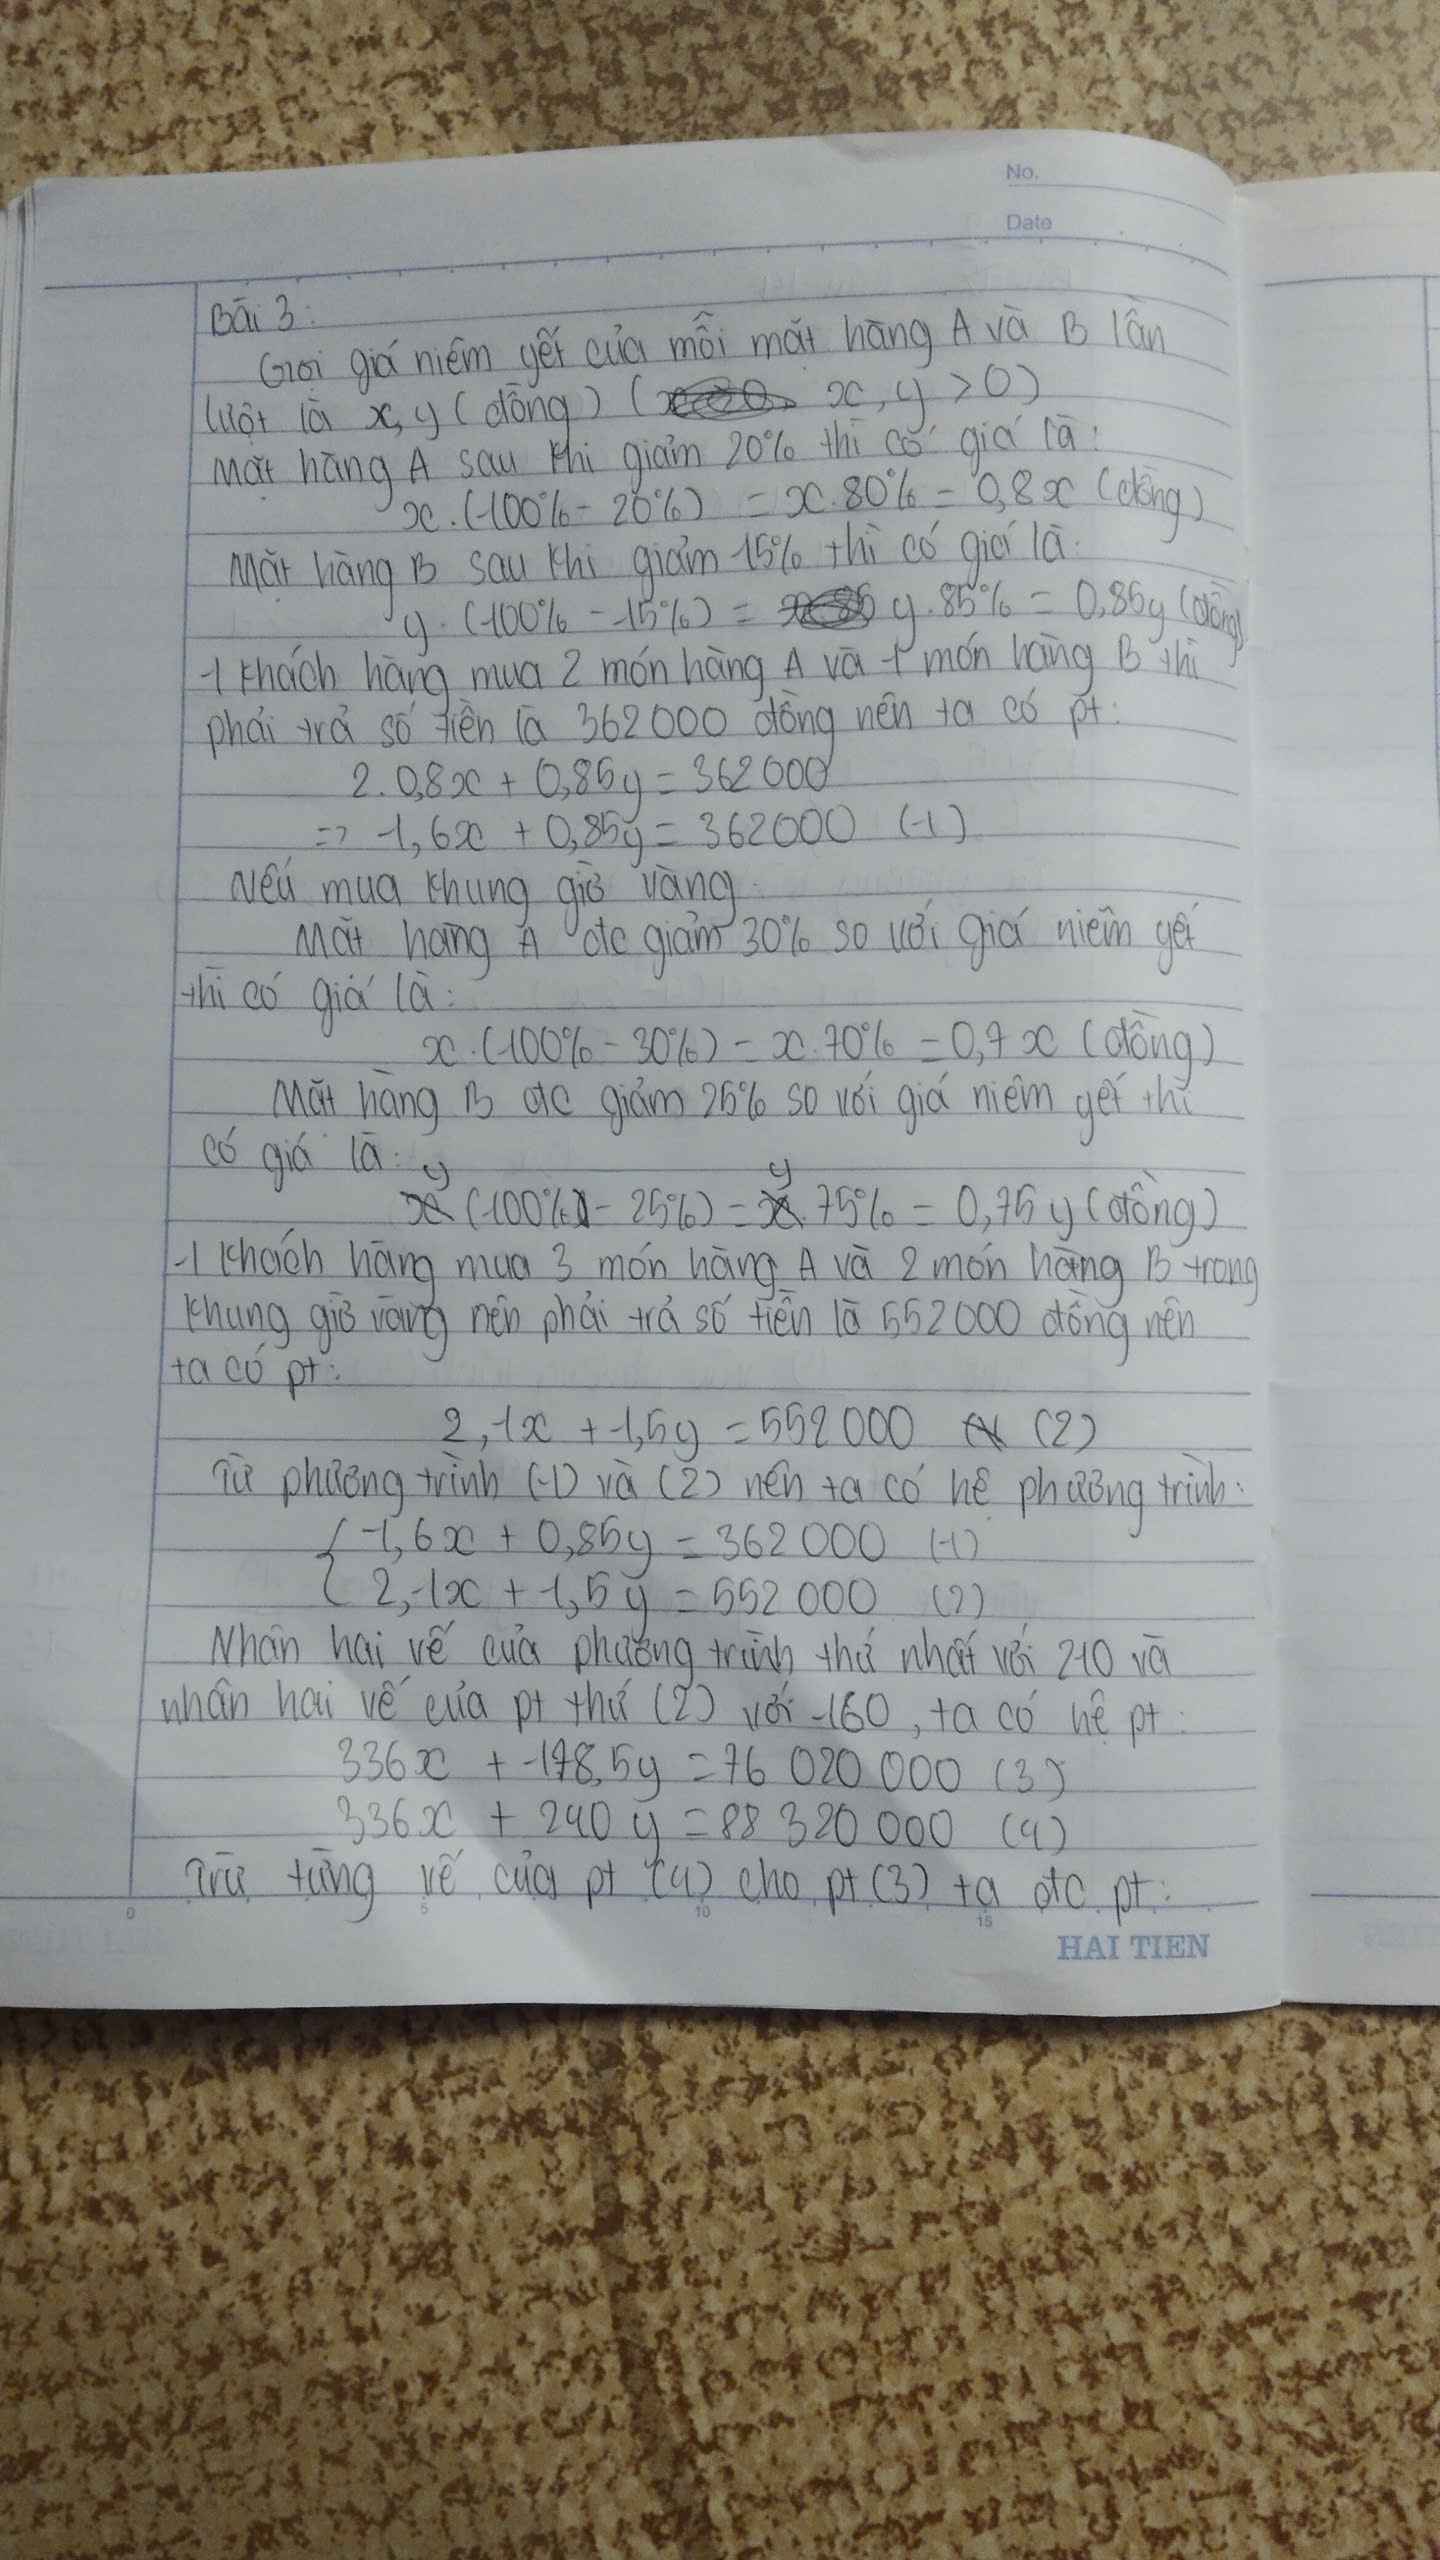 No.
Date
Bài 3:
Gọi giá niêm yết của mỗi mặt hàng A và B lần
lượt là x, y (đồng) ( x, y > 0)
Mặt hàng A sau khi giảm 20% thì có giá là:
x.(100% - 20%) = x.80% = 0,8x (đồng)
Mặt hàng B sau khi giảm 15% thì có giá là:
y.(100% - 15%) = y.85% = 0,85y (đồng)
1 khách hàng mua 2 món hàng A và 1 món hàng B thì
phải trả số tiền là 362000 đồng nên ta có pt:
2.0,8x + 0,85y = 362000
=> 1,6x + 0,85y = 362000 (1)
Nếu mua khung giờ vàng:
Mặt hàng A đc giảm 30% so với giá niêm yết
thì có giá là:
x.(100% - 30%) = x.70% = 0,7x (đồng)
Mặt hàng B đc giảm 25% so với giá niêm yết thì
có giá là:
y (100% - 25%) = y.75% = 0,75y (đồng)
1 khách hàng mua 3 món hàng A và 2 món hàng B trong
khung giờ vàng nên phải trả số tiền là 552000 đồng nên
ta có pt:
2,1x + 1,5y = 552000 (2)
Từ phương trình (1) và (2) nên ta có hệ phương trình:
{ 1,6x + 0,85y = 362000 (1)
{ 2,1x + 1,5y = 552000 (2)
Nhân hai vế của phương trình thứ nhất với 210 và
nhân hai vế của pt thứ (2) với 160, ta có hệ pt:
336x + 178,5y = 76 020 000 (3)
336x + 240y = 88 320 000 (4)
Trừ từng vế của pt (4) cho pt (3) ta đc pt:
0 5 10 15
HAI TIEN